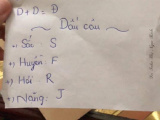 D+D = Đ
~ Dấu câu ~
+) Sắc S
+) Huyền F
+) Hỏi R
+) Nặng J